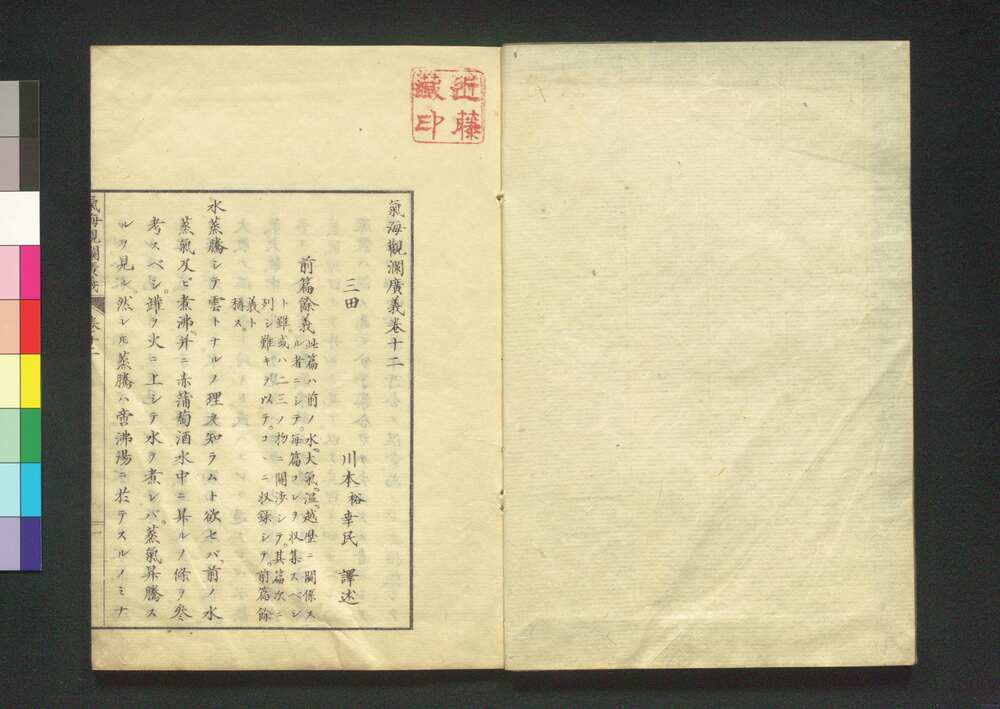 近藤
藏印
氣海觀瀾廣義卷十二
三田 川本裕幸民 譯述
前篇餘義
此篇ハ前ノ水。大氣。温。越歴ニ關係ス
ル者ニシテ。每篇コレヲ収集スベシ
ト雖。或ハ二三ノ物ニ關渉シテ。其篇次ニ
列シ難キヲ以テ。コヽニ収錄シテ。前篇餘
義ト
稱ス。
水蒸騰シテ雲トナルノ理ヲ知ラムト欲セバ。前ノ水
蒸氣及ビ煮沸。并ニ赤蒲萄酒水中ニ昇ルノ條ヲ參
考スベシ。罐ヲ火ニ上シテ水ヲ煮レバ。蒸氣昇騰ス
ルヲ見ル。然レ𪜈蒸騰ハ啻沸湯ニ於テスルノミナ
氣海觀瀾廣義 卷十二 一